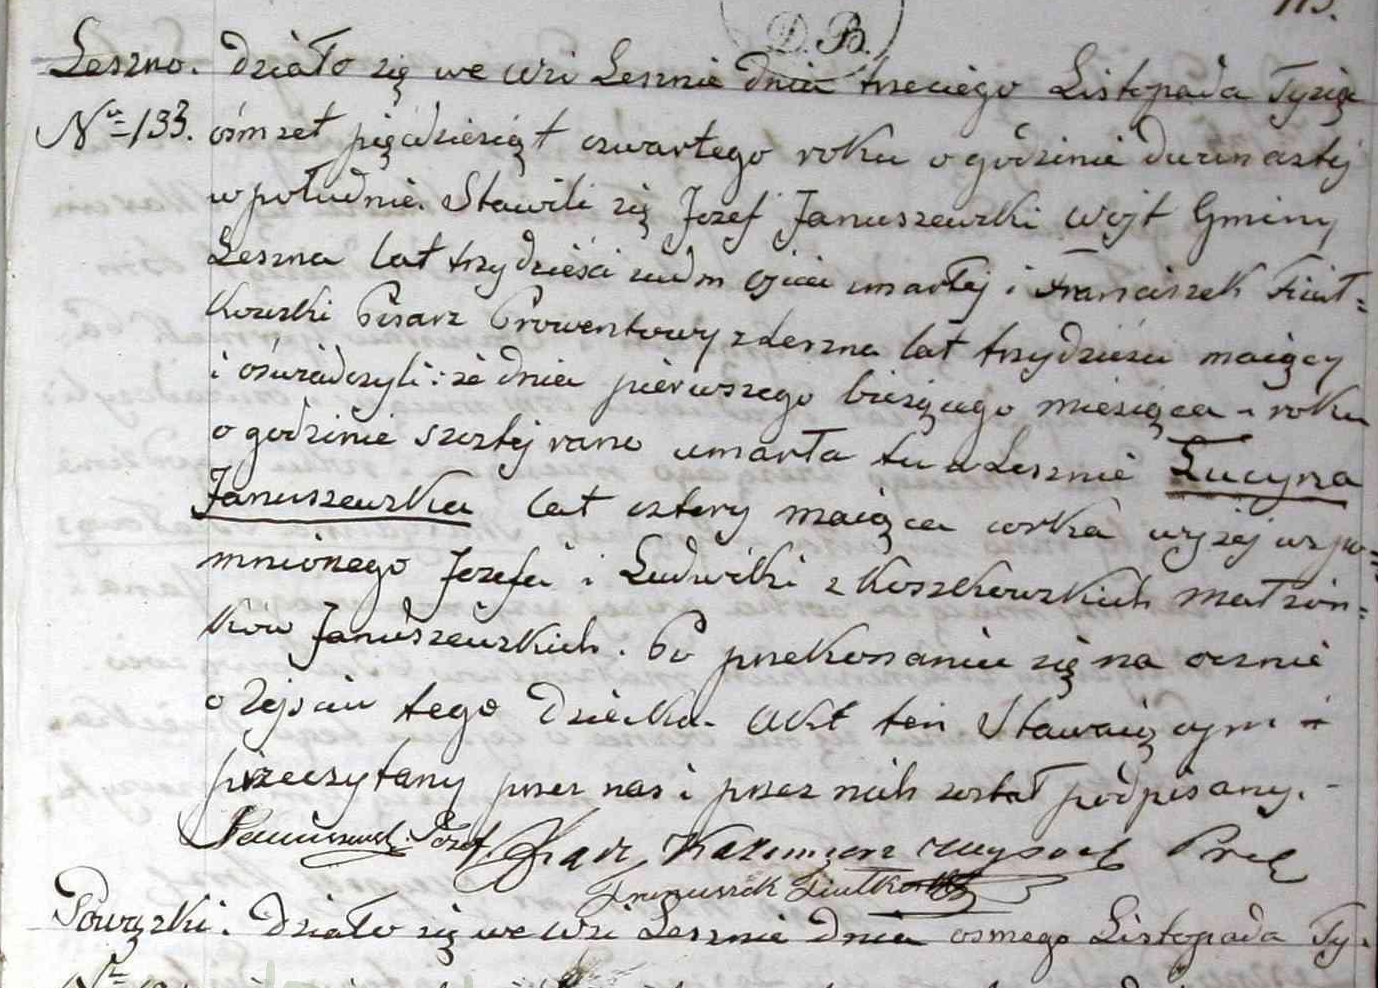 113.
D. B.
Leszno. Działo się we Wsi Lesznie dnia trzeciego Listopada Tysiąc
Nr 133. ośmset pięćdziesiąt czwartego roku o godzinie dwunastej
w południe. Stawili się Jozef Januszewski Wójt Gminy
Leszna lat trzydzieści siedm ojciec umarłej i Franciszek Fiut=
kowski Pisarz Prowentowy z Leszna lat trzydzieści maiący
i oświadczyli: że dnia pierwszego bieżącego miesiąca i roku
o godzinie szóstej rano umarła tu w Lesznie Lucyna
Januszewska lat cztery maiąca córka wyżej wspo=
mnionego Jozefa i Ludwiki z Koszkowskich małżon=
kow Januszewskich. Po przekonaniu się na ocznie
o Zejściu tego dziecka Akt ten Stawaiącym
przeczytany przez nas i przez nich został podpisany.
Januszewski Józef. Kazimierz
Franciszek Fiutkowski
Powązki. Działo się we Wsi Lesznie dnia osmego Listopada Ty-